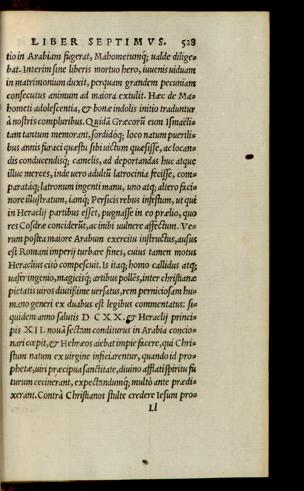 LIBER SEPTIMVS. 528
tio in Arabiam fugerat, Mahometumq; ualde dilige-
bat. Interim sine liberis mortuo hero, iuuenis uiduam
in matrimonium duxit, perquam grandem pecuniam
consecutus animum ad maiora extulit. Hæc de Ma-
hometi adolescentia, & bonæ indolis initio traduntur
à nostris compluribus. Quidã Græcorũ eum Ismaëli-
tam tantum memorant, sordidoq; loco natum puerili-
bus annis fœnaci quæstu sibi uictum quæsisse, ac locan-
dis conducendisq; camelis, ad deportandas huc atque
illuc merces, inde uero adultũ latrocinia fecisse, com-
paratãq; latronum ingenti manu, uno atq; altero faci-
nore illustratum, iamq; Persicis rebus infestum, ut qui
in Heraclij partibus esset, pugnasse in eo prælio, quo
res Cosdræ conciderũt, ac inibi uulnere affectum. Ve-
rum postea maiore Arabum exercitu instructus, ausus
est Romani imperij turbare fines, cuius tamen motus
Heraclius citò compescuit. Is itaq; homo callidus atq;
uafer ingenio, magicisq; artibus pollẽs, inter christianæ
pietatis uiros diutissime uersatus, rem perniciosam hu-
mano generi ex duabus est legibus commentatus: si-
quidem anno salutis D CXX. & Heraclij princi-
pis XII. nouã sectam conditurus in Arabia concio-
nari cœpit, & Hebræos aiebat impie facere, qui Chri-
stum natum ex uirgine inficiarentur, quando id pro-
phetæ, uiri præcipua sanctitate, diuino afflati spiritu fu
turum cecinerant, expectandumq; multò ante prædi-
xerant. Contrà Christianos stulte credere Iesum pro-
Ll